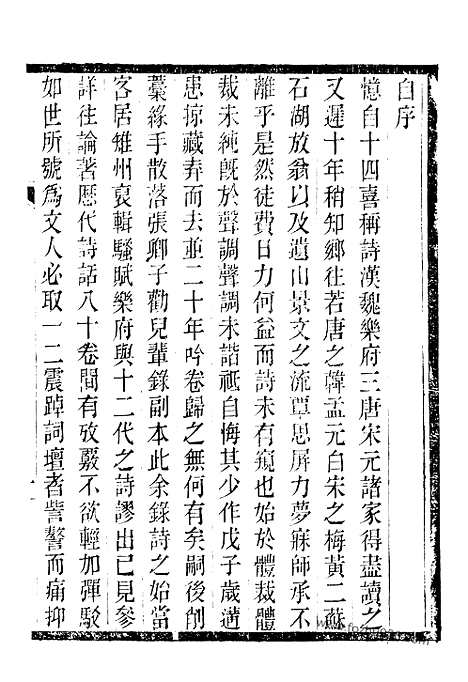 自序
憶自十四喜稱詩漢魏樂府三唐宋元諸家得盡讀之
又遲十年稍知鄉往若唐之韓孟元白宋之梅黃二蘇
石湖放翁以及遺山景文之流覃思屏力夢寐師承不
離乎是然徒費日力何益而詩未有窺也始於體裁體
裁未純旣於聲調聲調未諧祗自悔其少作戊子歲遘
患掠藏弆而去並二十年吟卷歸之無何有矣嗣後削
藁緣手散落張卿子勸兒輩錄副本此余錄詩之始當
客居雉州裒輯騷賦樂府與十二代之詩謬出已見參
詳往論著歷代詩話八十卷間有攷覈不欲輕加彈駁
如世所號爲文人必取一二震踔詞壇者訾謷而痛抑